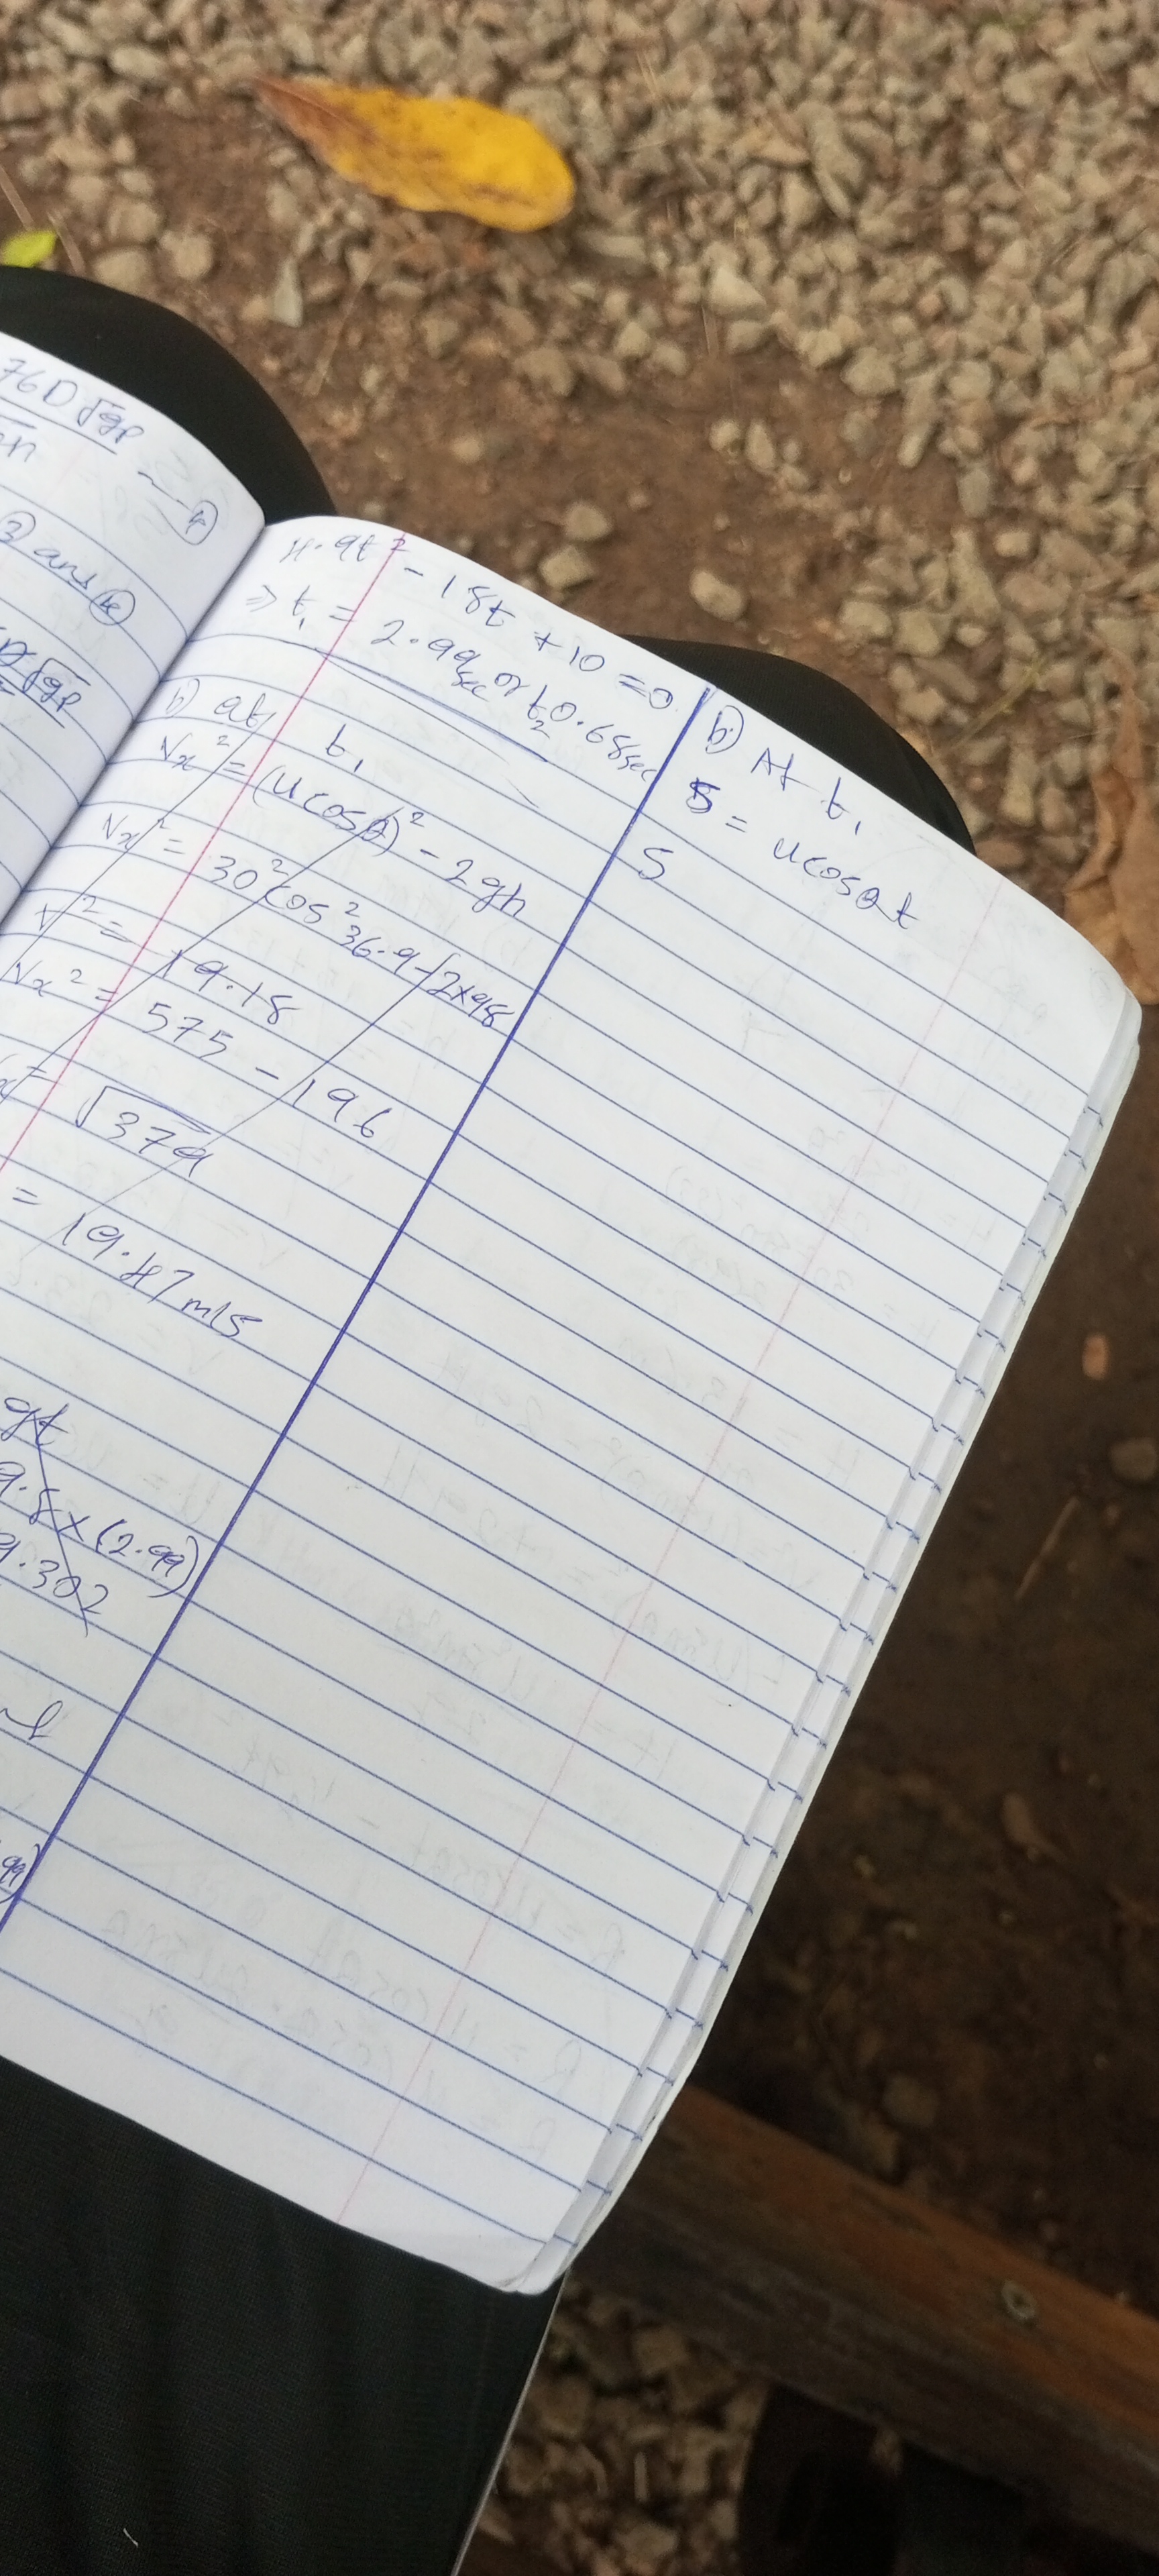 76D √gp
②
③ ans ④
√gp
4.9t² - 18t + 10 = 0
⇒ t₁ = 2.99sec or t₂ 0.68sec
b) at t₁
Vx² = (ucosθ)² - 2gh
Vx² = 30²cos²36.9 - 2×98
V² = 19.18
Vx² = 575 - 196
= √379
= 19.47m/s
gt
9.8×(2.99)
9.302
b) At t₁
S = ucosθt
S